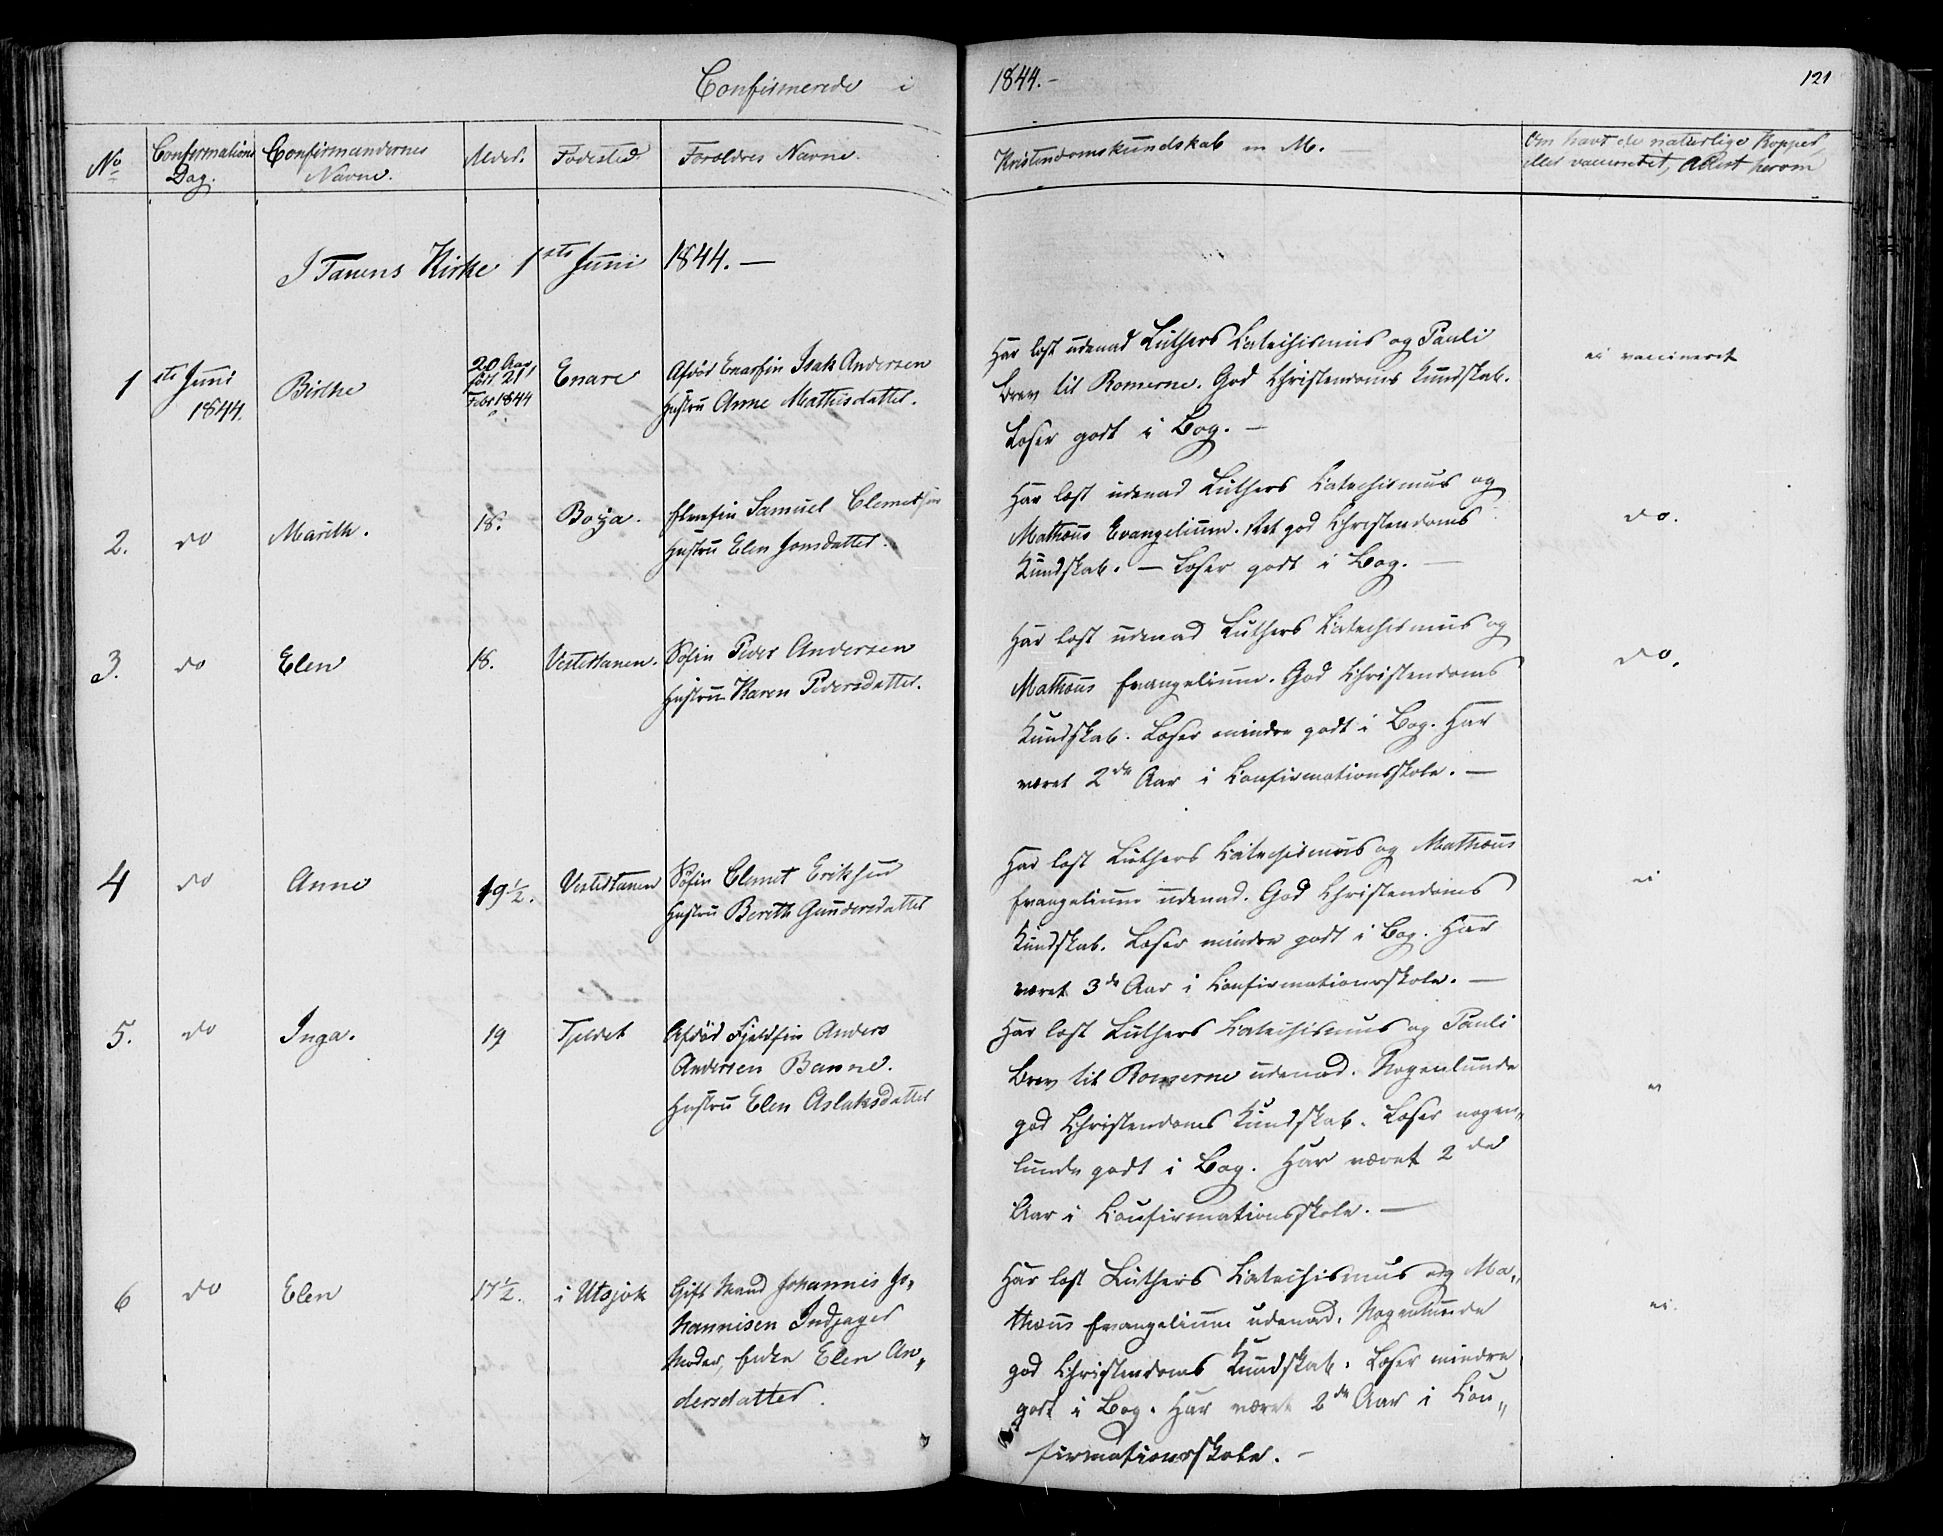 Confirmerede i 1844.- 121
No
Confirmations Dag.
Confirmandernes Navne.
Alder.
Fødested
Forældres Navne.
Kristendomskundskab m M.
Om havt de naturlige Kopper,
eller vaccineret, Attest herom
I Tanens Kirke 1ste Juni 1844. —
1
ste Juni
1844.
Birthe
20 Aar
født 21
Febr 1844
Enare
Afdød Enarfin Isak Andersen
Hustru Anne Mathisdatter.
Har læst udenad Luthers Catechismus og Pauli
Brev til Romerne. God Christendoms Kundskab.
Læser godt i Bog. —
ei vaccineret
2.
do
Marith.
18.
Samuel Clemetsen
Hustru Elen Jonsdatter.
Har læst udenad Luthers Catechismus og
Mathæus Evangelium. Ret god Christendoms
Kundskab. — Læser godt i Bog. —
do.
3.
do
Elen
18.
Vestertanen.
Søfin Peder Andersen
Hustru Karen Pedersdatter.
Har læst udenad Luthers Catechismus og
Mathæus Evangelium. God Christendoms
Kundskab. Læser mindre godt i Bog. Har
været 2de Aar i Confirmationsskole. —
do.
4
do
Anne
19½.
Vestertanen
Søfin Clemet Eriksen
Hustru Berith Gundersdatter
Har læst Luthers Catechismus og Mathæus
Evangelium udenad. God Christendoms
Kundskab. Læser mindre godt i Bog. Har
været 3de Aar i Confirmationsskole. —
ei
5.
do
Inga.
19
Fjeldet
Afdød Fjeldfin Anders
Andersen Banne.
Hustru Elen Aslaksdatter
Har læst Luthers Catechismus og Pauli
Brev til Romerne udenad. Nogenlunde
god Christendoms Kundskab. Læser nogen„
lunde godt i Bog. Har været 2de
Aar i Confirmationsskole. —
ei
6
do
Elen
17½.
i Utsjok
Gift Mand Johannis Jo„
hannisen Indjager
Moder, Elen An„
dersdatter.
Har læst Luthers Catechismus og Ma„
thæus Evangelium udenad. Nogenlunde
god Christendoms Kundskab. Læser mindre
godt i Bog. Har været 2de Aar i Con„
firmationsskole. —
ei.